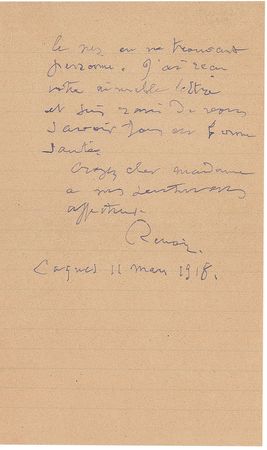 le nez en ne trouvant
personne. J'ai reçu
votre aimable lettre
et suis ravi de vous
savoir tous en bonne
santé.
Croyez cher madame
a mes sentiments
affectueux
Renoir.
Cagnes 11 mars 1918.